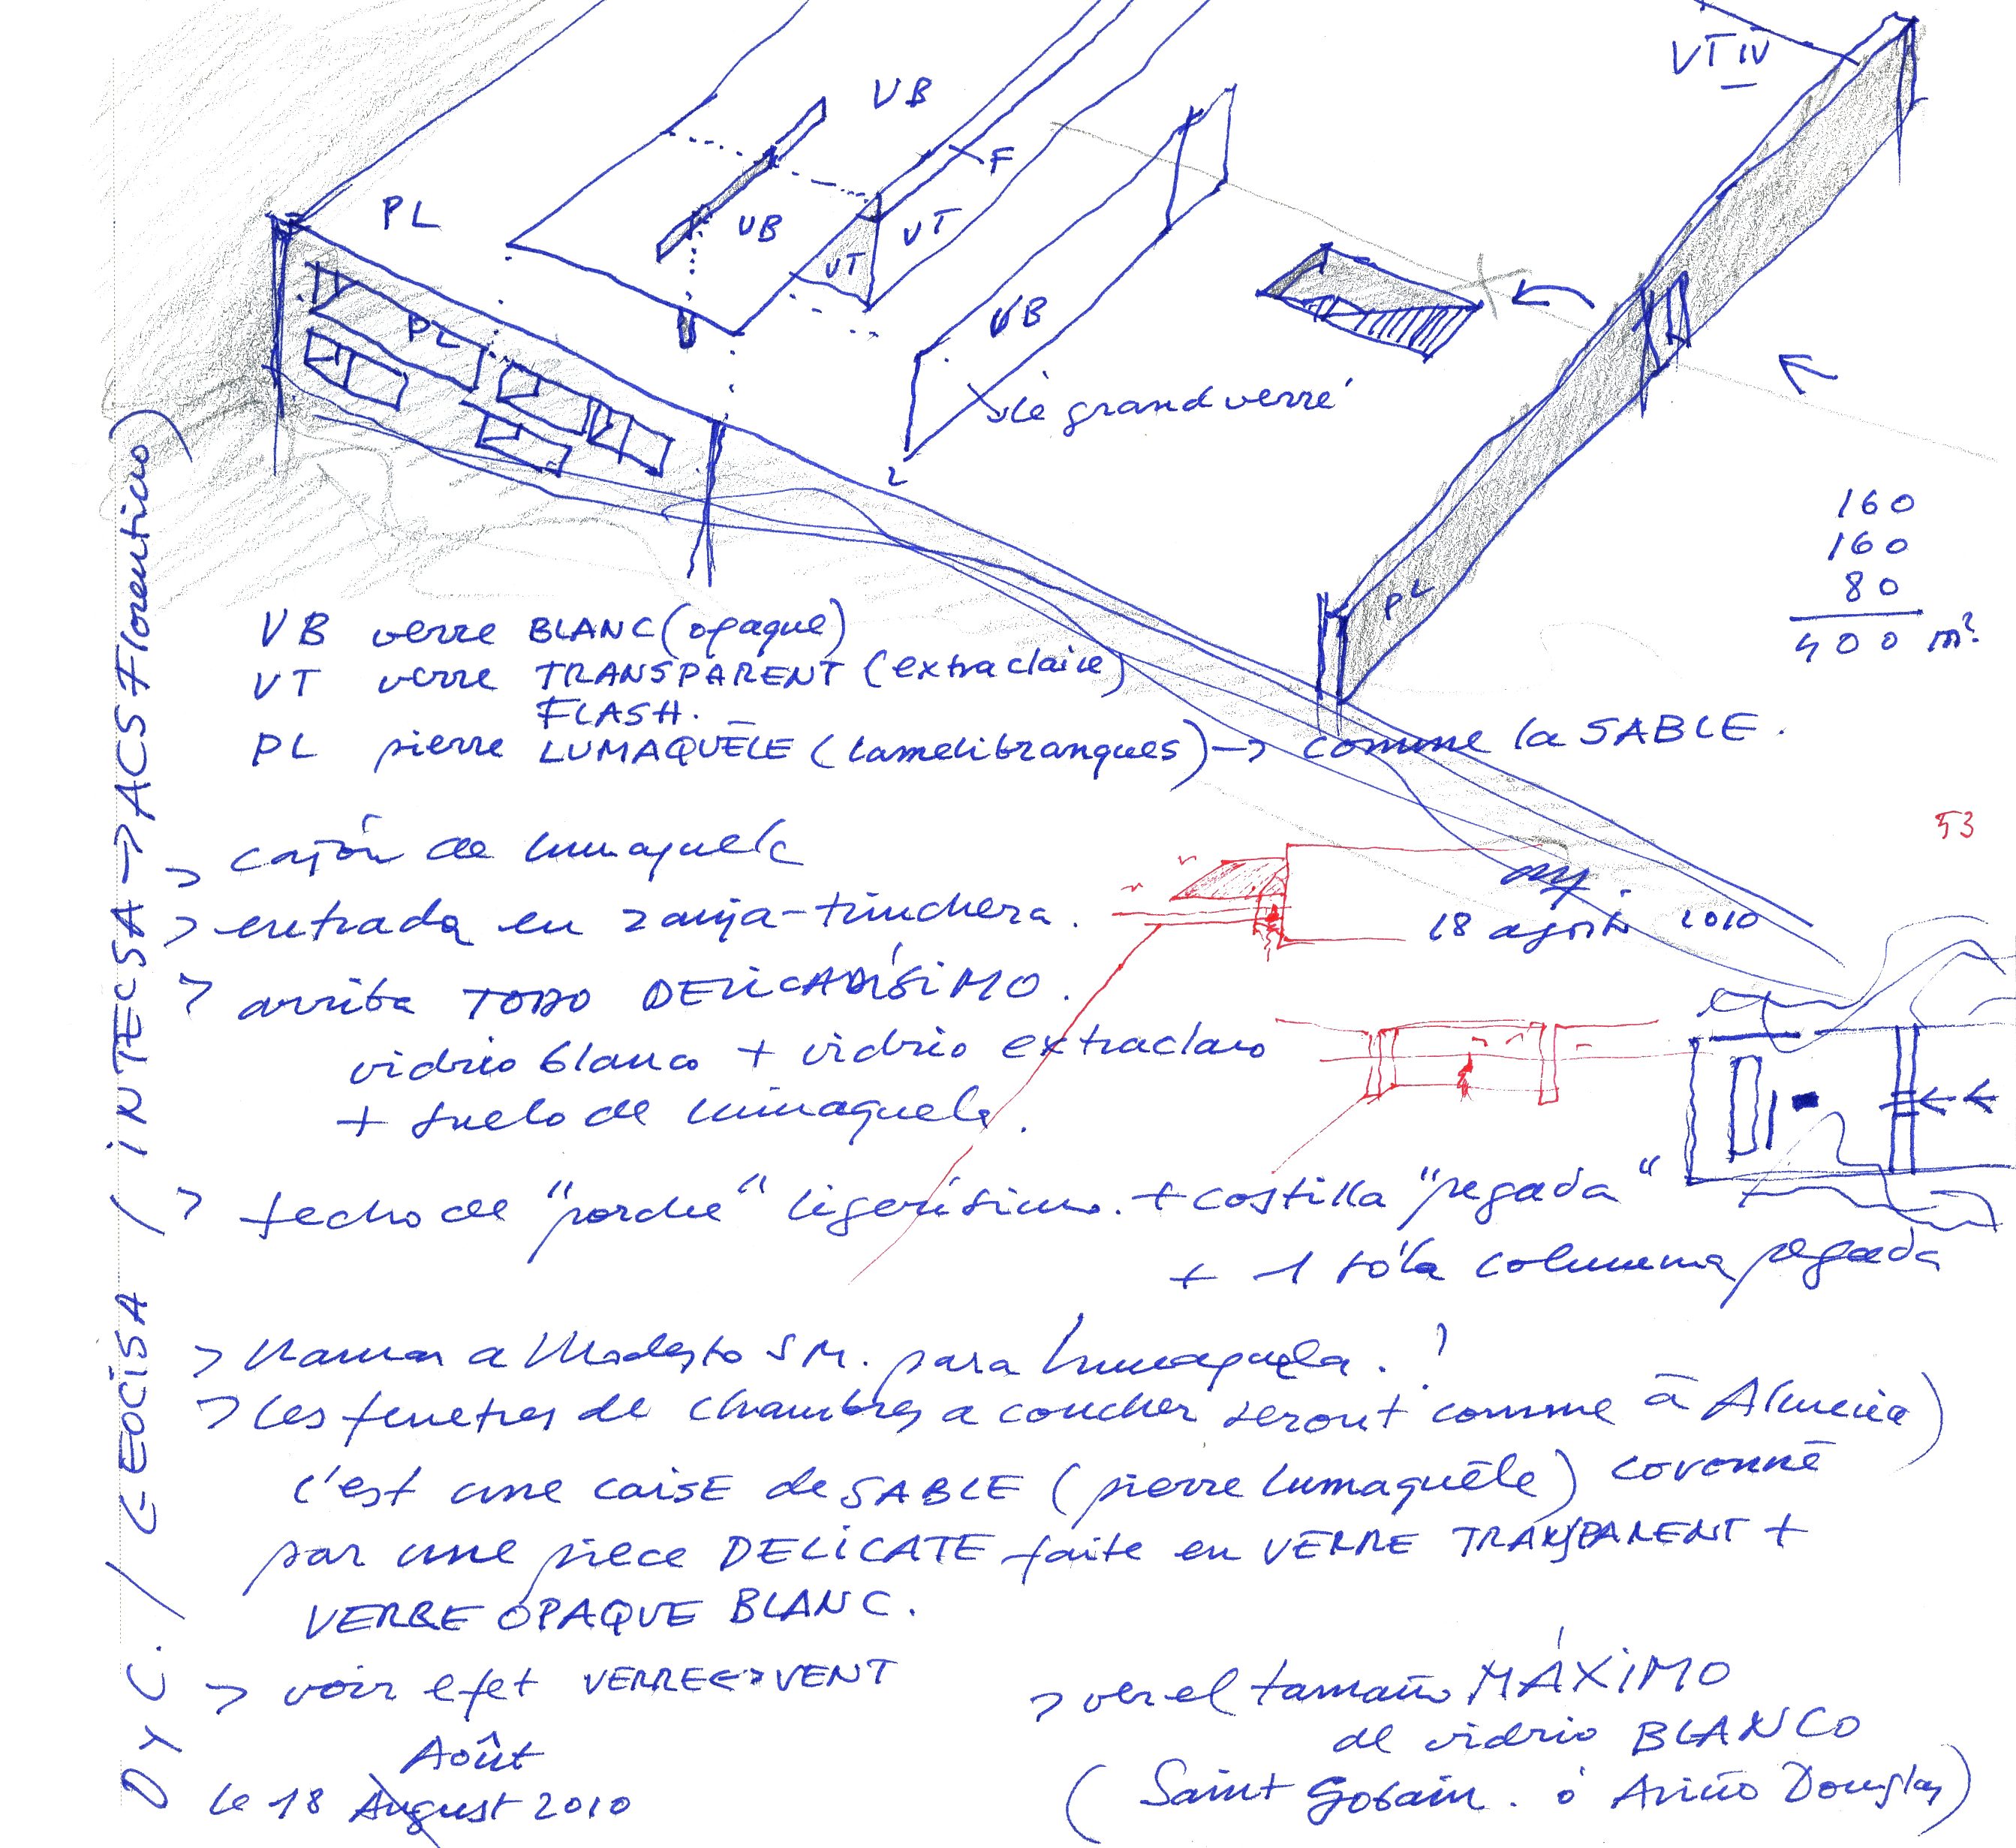 VT IV
VB
F
PL
VB
VT
VT
VB
PL
"le grand verre"
160
160
80
400 m²
PL
VB verre BLANC (opaque)
VT verre TRANSPARENT (extraclaire)
FLASH.
PL pierre LUMAQUÊLE (lamelibranques) → comme la SABLE.
53
> cajón de lumaquela
> entrada en zanja-trinchera.
18 agosto 2010
> arriba TODO DELICADÍSIMO.
vidrio blanco + vidrio extraclaro
+ suelo de lumaquela.
> techo de "porche" ligerísimo. + costilla "pegada"
+ 1 sóla columna pegada
> llamar a Modesto SM. para lumaquela.!
> les fenetres de chambres a coucher seront comme à Almeria)
c'est une caisE de SABLE (pierre lumaquêle) coronné
par une piece DELICATE faite en VERRE TRANSPARENT +
VERRE OPAQUE BLANC.
> voir efet VERRE<->VENT
Août
le 18 August 2010
> ver el tamaño MÁXIMO
de vidrio BLANCO
(Saint Gobain. ó Ariño Douglas)
D y C. / GEOCISA / INTECSA → ACS Florentino)